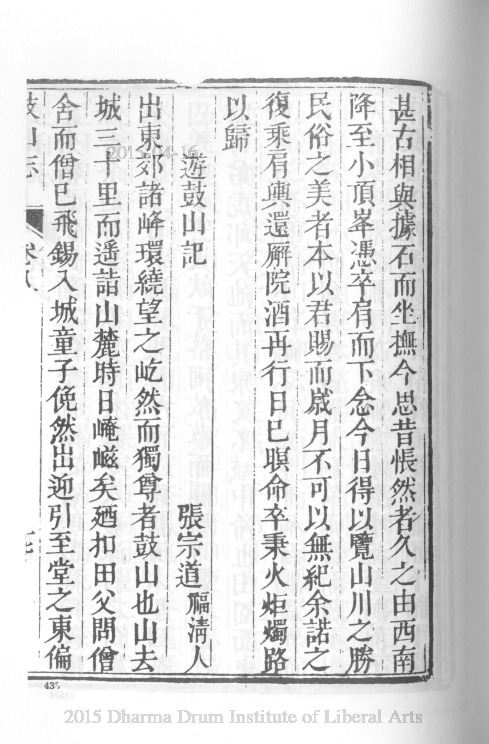 甚古相與據石而坐撫今思昔悵然者久之由西南
降至小頂峯憑卒肩而下念今日得以覽山川之勝
民俗之美者本以君賜而歲月不可以無紀余諾之
復乘肩輿還廨院酒再行日已暝命卒秉火炬燭路
以歸
遊鼓山記
張宗道福淸人
出東郊諸峰環繞望之屹然而獨尊者鼓山也山去
城三十里而遥詰山麓時日崦嵫矣廼扣田父問僧
舍而僧已飛錫入城童子俛然出迎引至堂之東偏
鼓山志
2013-04-16
435
2015 Dharma Drum Institute of Liberal Arts